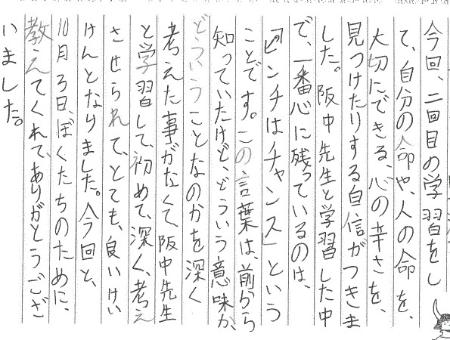 今回、二回目の学習をし
て、自分の命や、人の命を、
大切にできる、心の辛さを、
見つけたりする自信がつきま
した。阪中先生と学習した中
で、一番心に残っているのは、
「ピンチはチャンス」という
ことです。この言葉は、前から
知っていたけど、どういう意味か、
どういうことなのかを深く
考えた事がなくて阪中先生
と学習して、初めて、深く、考え
させられて、とても、良いけい
けんとなりました。今回と、
10月3日、ぼくたちのために、
教えてくれて、ありがとうござ
いました。